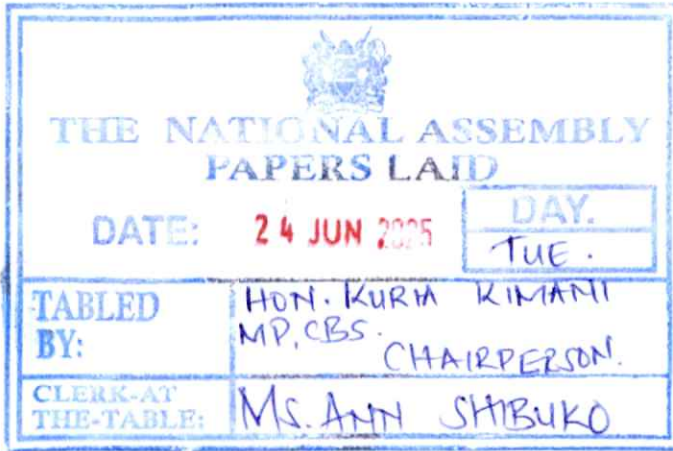 THE NATIONAL ASSEMBLY
PAPERS LAID
DATE: 24 JUN 2025
DAY.
TUE.
TABLED BY:
HON. KURIA KIMANI
MP, CBS.
CHAIRPERSON.
CLERK-AT THE-TABLE:
MS. ANN SHIBUKO